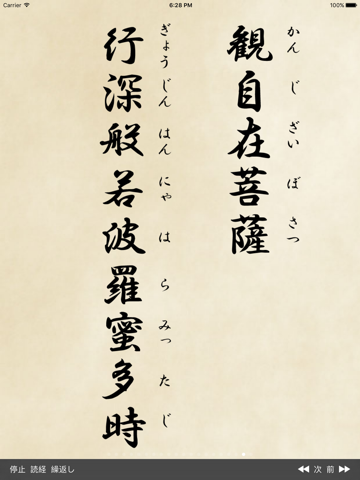 Carrier 6:28 PM 100%
観自在菩薩
かんじざいぼさつ
行深般若波羅蜜多時
ぎょうじんはんにゃはらみったじ
停止 読経 繰返し 次 前